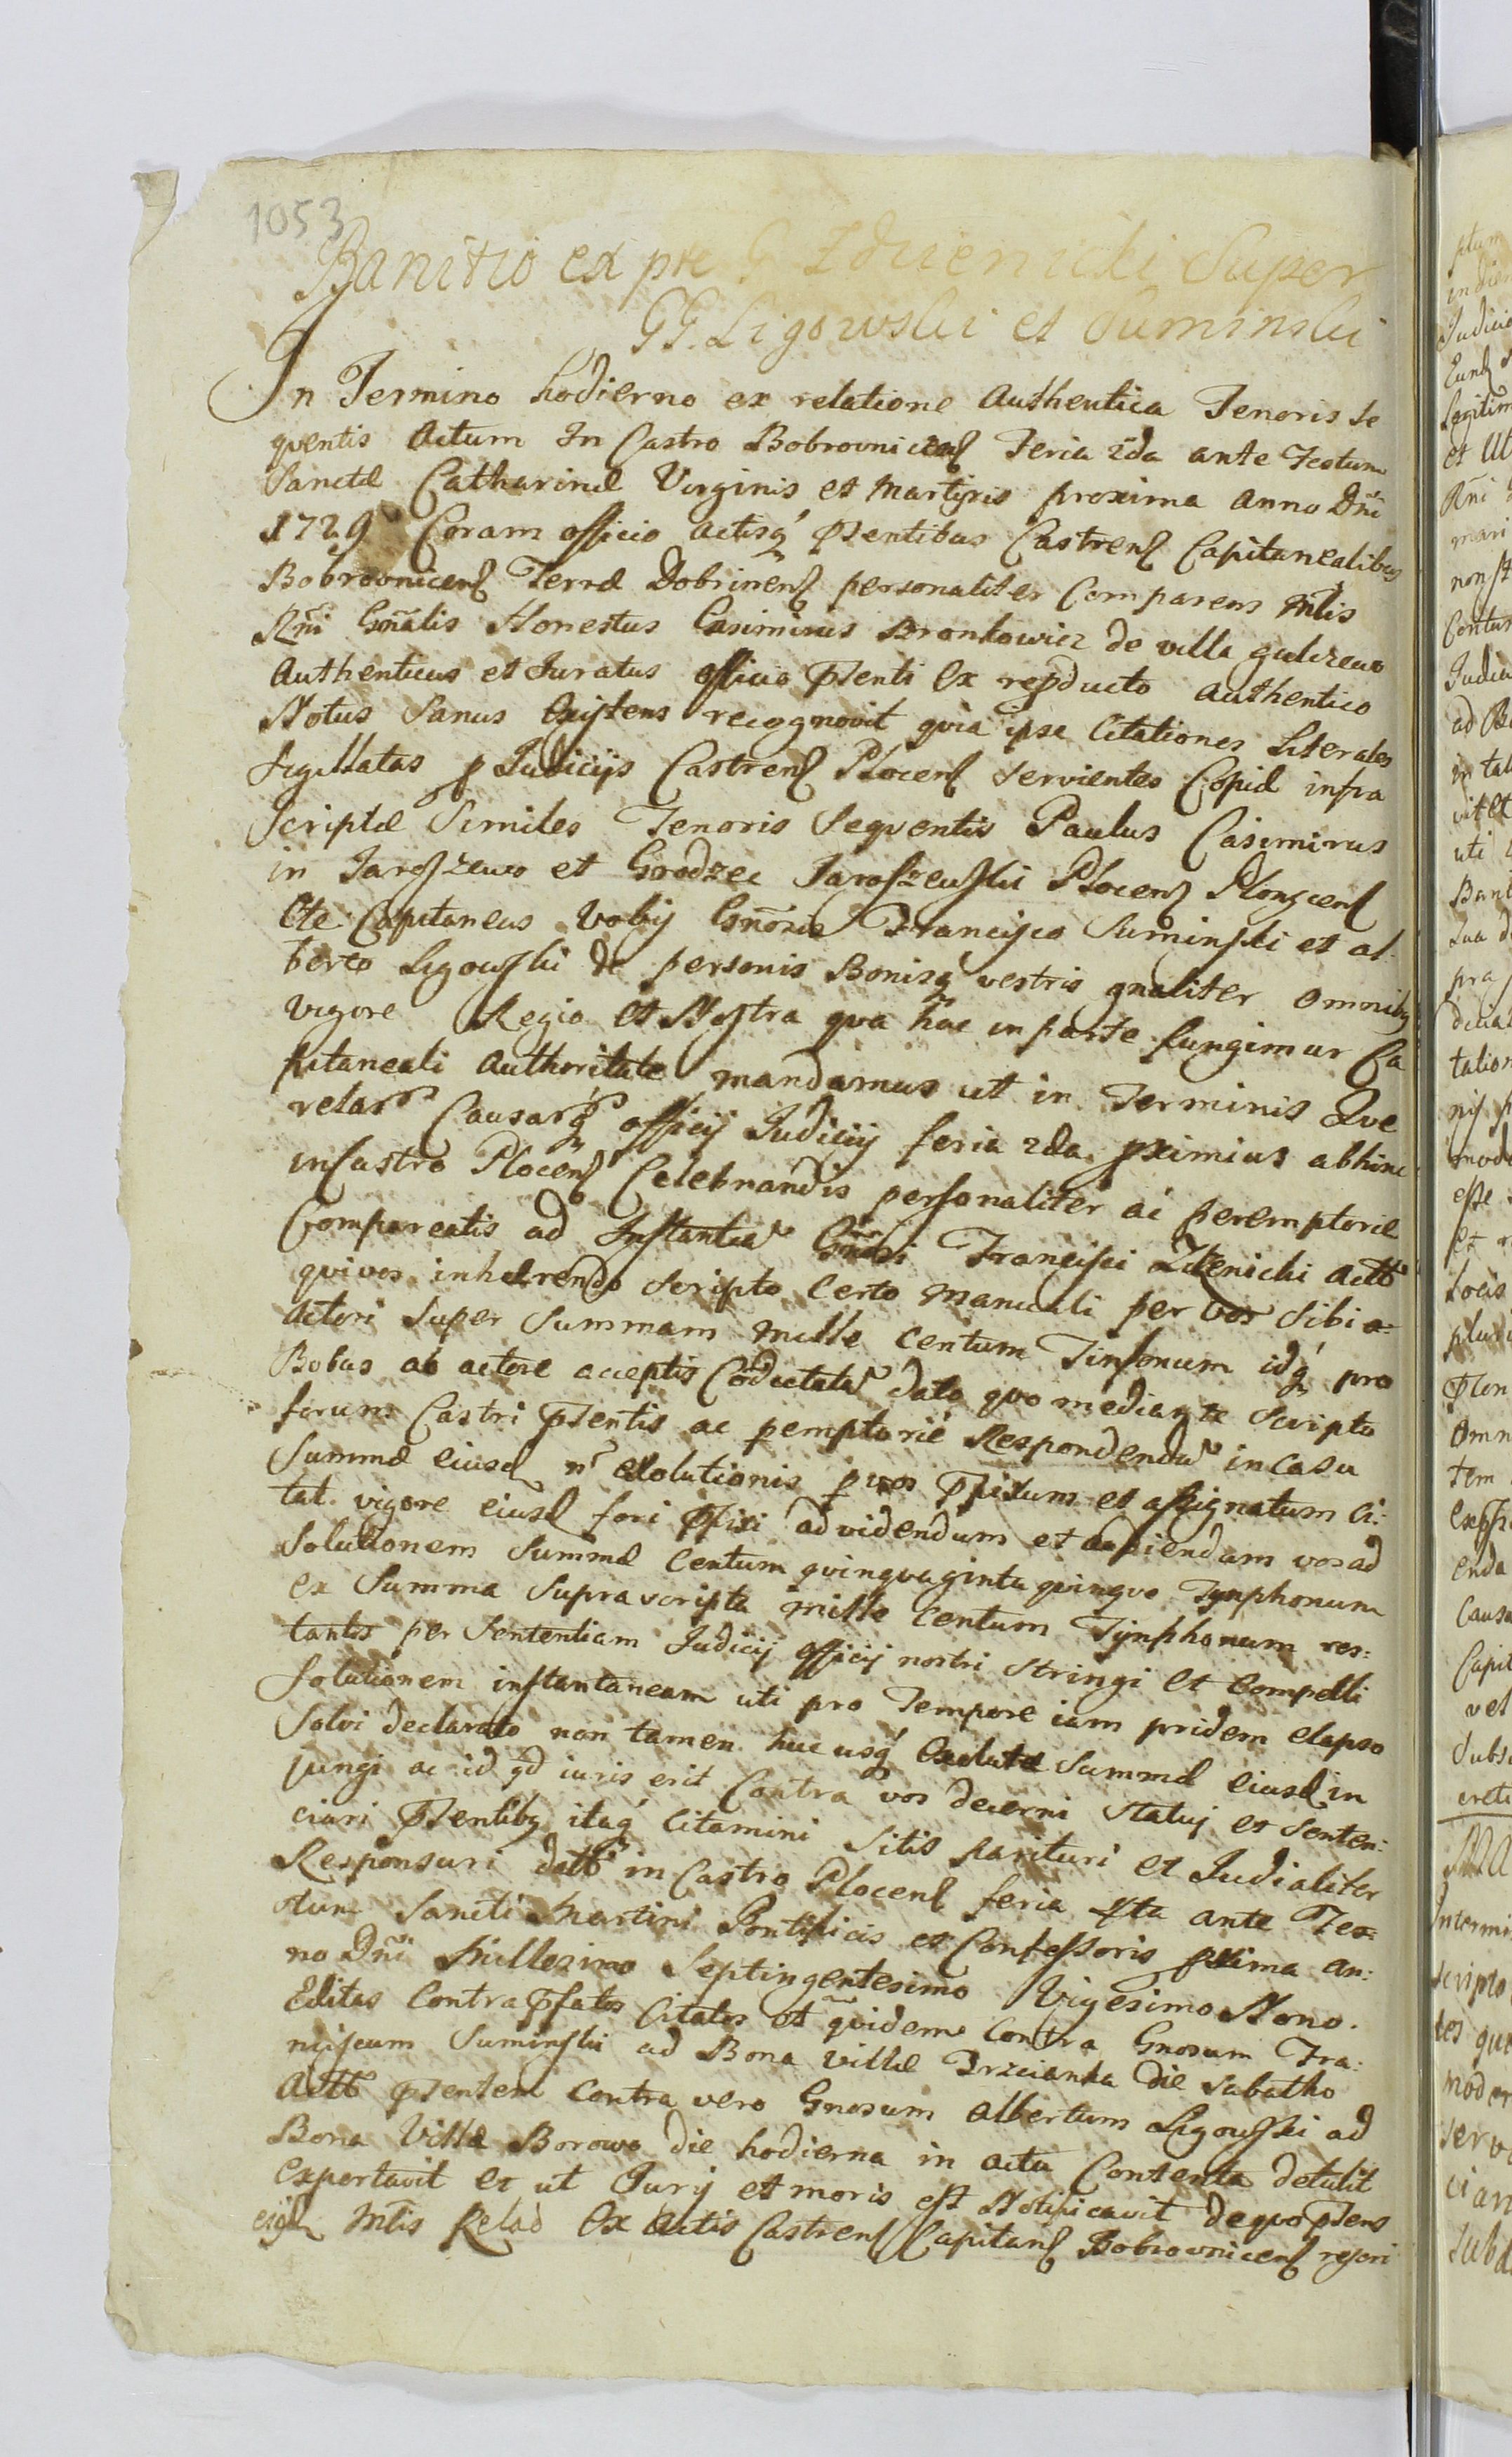 1053
Banitio ex pte G Zdzienicki Super
GG. Ligowski et Suminski
In Termino hodierno ex relatione Authentica Tenoris se
quentis Actum In Castro Bobrovnicens Feria 2da ante Festum
Sanctæ Catharinæ Virginis et Martyris proxima Anno Dni
1729 Coram officio Actisq pntibus Castrens Capitanealibus
Bobrovnicens Terræ Dobrinens personaliter Comparens Mtlis
Rni Gnalis Honestus Casimirus Bronkowicz de villa
Authenticus et Juratus officio pnti Ex repducto Authentico
Notus Sanus Existens recognovit qvia ipse Citationes Literales
Sigillatas p Judicijs Castrens Plocens servientes Copiæ infra
Scriptæ Similes Tenoris Seqventis Paulus Casimirus
in Jaroszewo et Grodzec Jaroszewski Plocens Plonscens
Cte Capitaneus Vobis Gnoris Francisco Suminski et al
berto Ligowski de personis Bonisq vestris gnaliter Omnibus
vigore Regia Et Nostra qva hac in parte fungimur Ca
pitaneali Authoritate mandamus ut in Terminis Qve
relar Causarq officij Judicij feria 2da pximius abhinc
in Castro Plocens Celebrandis personaliter ac peremptorie
Compareatis ad Instantia Gnosi Francisci Zdzienicki Actt
qvi vos inhærendo scripto Certo Manuali per vos sibi a-
Actori super Summam Mille Centum Tinfonum idq pro
Bobus ab actore acceptis dato qvo mediante scripto
forum Castri pntis ac pemptorie Respondendu in Casu
Summæ eiusd n Exolutionis p vos et assignatum Ci:
tat. vigore eiusd fori ad videndum et Audiendum vos ad
Solutionem Summæ Centum qvinqvaginta qvinqve Tynphonum
ex Summa Supra scripta mille Centum Tynphonum res:
tantis per Sententiam Judicij officij nostri stringi Et Compelli
Solutionem instantaneam uti pro Tempore iam pridem elapso
Solvi declarato non tamen huc usq Exolutæ Summæ eiusd in
jungi ac id qd iuris erit Contra vos decerni statuj et senten:
ciari pntibq itaq Citamini sitis parituri et Judialiter
Responsuri Datt in Castro Plocens feria 4ta ante Fes:
tum Sancti Martini Pontificis et Confessoris pxima an:
no Dni Millesimo Septingentesimo Vigesimo Nono.
Editas Contra pfatos Citatos et qvidem Contra Gnosum Fra:
nciscum Suminski ad Bona Villæ Trzcianka die Sabatho
Actt pntem Contra vero Gnosum Albertum Ligowski ad
Bona Villæ Borowo die hodierna in actu Contenta detulit
Exportavit et ut Jurij et moris est Notificavit de qvo pns
eigs Mtlis Relao Ex Actis Castrens Capitans Bobrovnicens